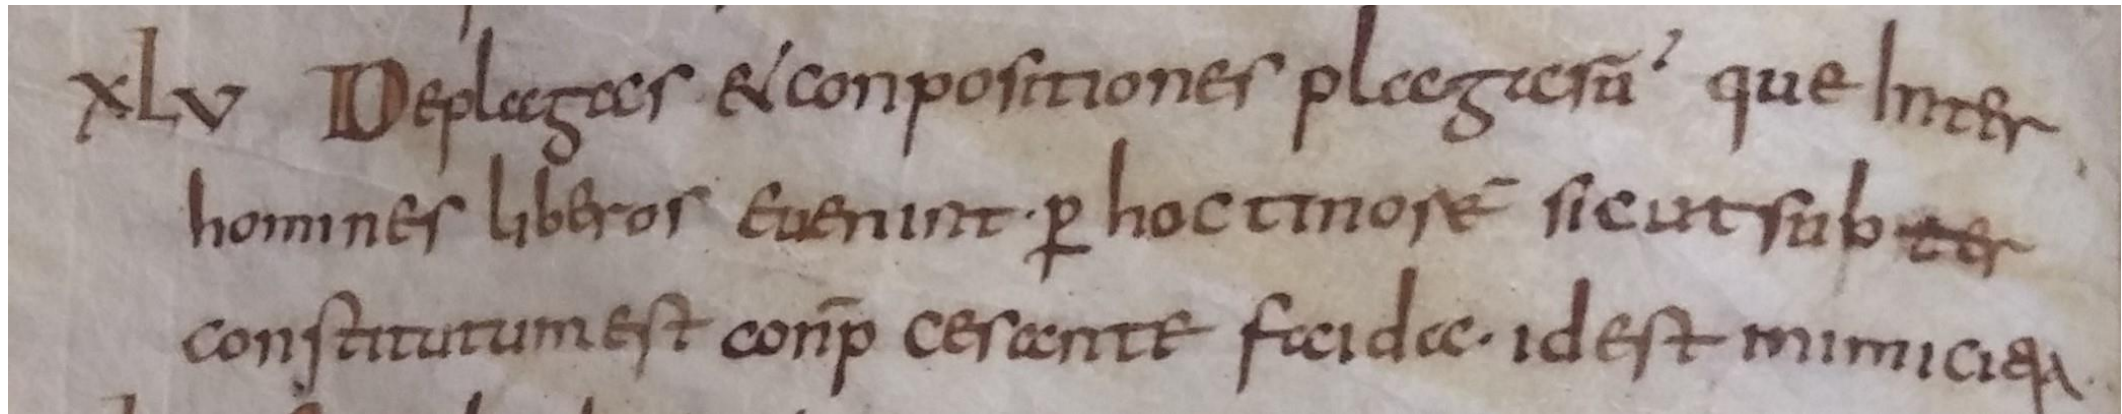 XLV De plagas et conpositiones plagasū que inter
homines liberos evenint · p̱ hoc tinorē sicut subter
constitutum est con̄p cesante faida · id est inimicicia